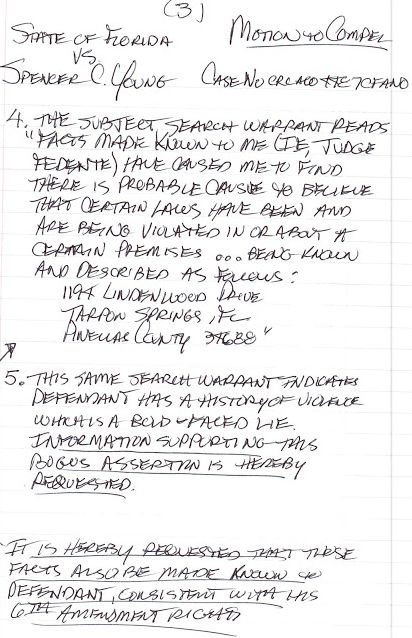 (3)
STATE OF FLORIDA MOTION TO COMPEL
VS
SPENCER C. YOUNG CASE NO
4. THE SUBJECT SEARCH WARRANT READS
"FACTS MADE KNOWN TO ME (IE, JUDGE
FEDENTE) HAVE CAUSED ME TO FIND
THERE IS PROBABLE CAUSE TO BELIEVE
THAT CERTAIN LAWS HAVE BEEN AND
ARE BEING VIOLATED IN OR ABOUT A
CERTAIN PREMISES ... BEING KNOWN
AND DESCRIBED AS FOLLOWS:
1194 LINDENWOOD DRIVE
TARPON SPRINGS, FL
PINELLAS COUNTY 34688"
5. THIS SAME SEARCH WARRANT INDICATES
DEFENDANT HAS A HISTORY OF VIOLENCE
WHICH IS A BOLD-FACED LIE.
INFORMATION SUPPORTING THIS
BOGUS ASSERTION IS HEREBY
REQUESTED.
IT IS HEREBY REQUESTED THAT THESE
FACTS ALSO BE MADE KNOWN TO
DEFENDANT, CONSISTENT WITH HIS
6TH AMENDMENT RIGHTS